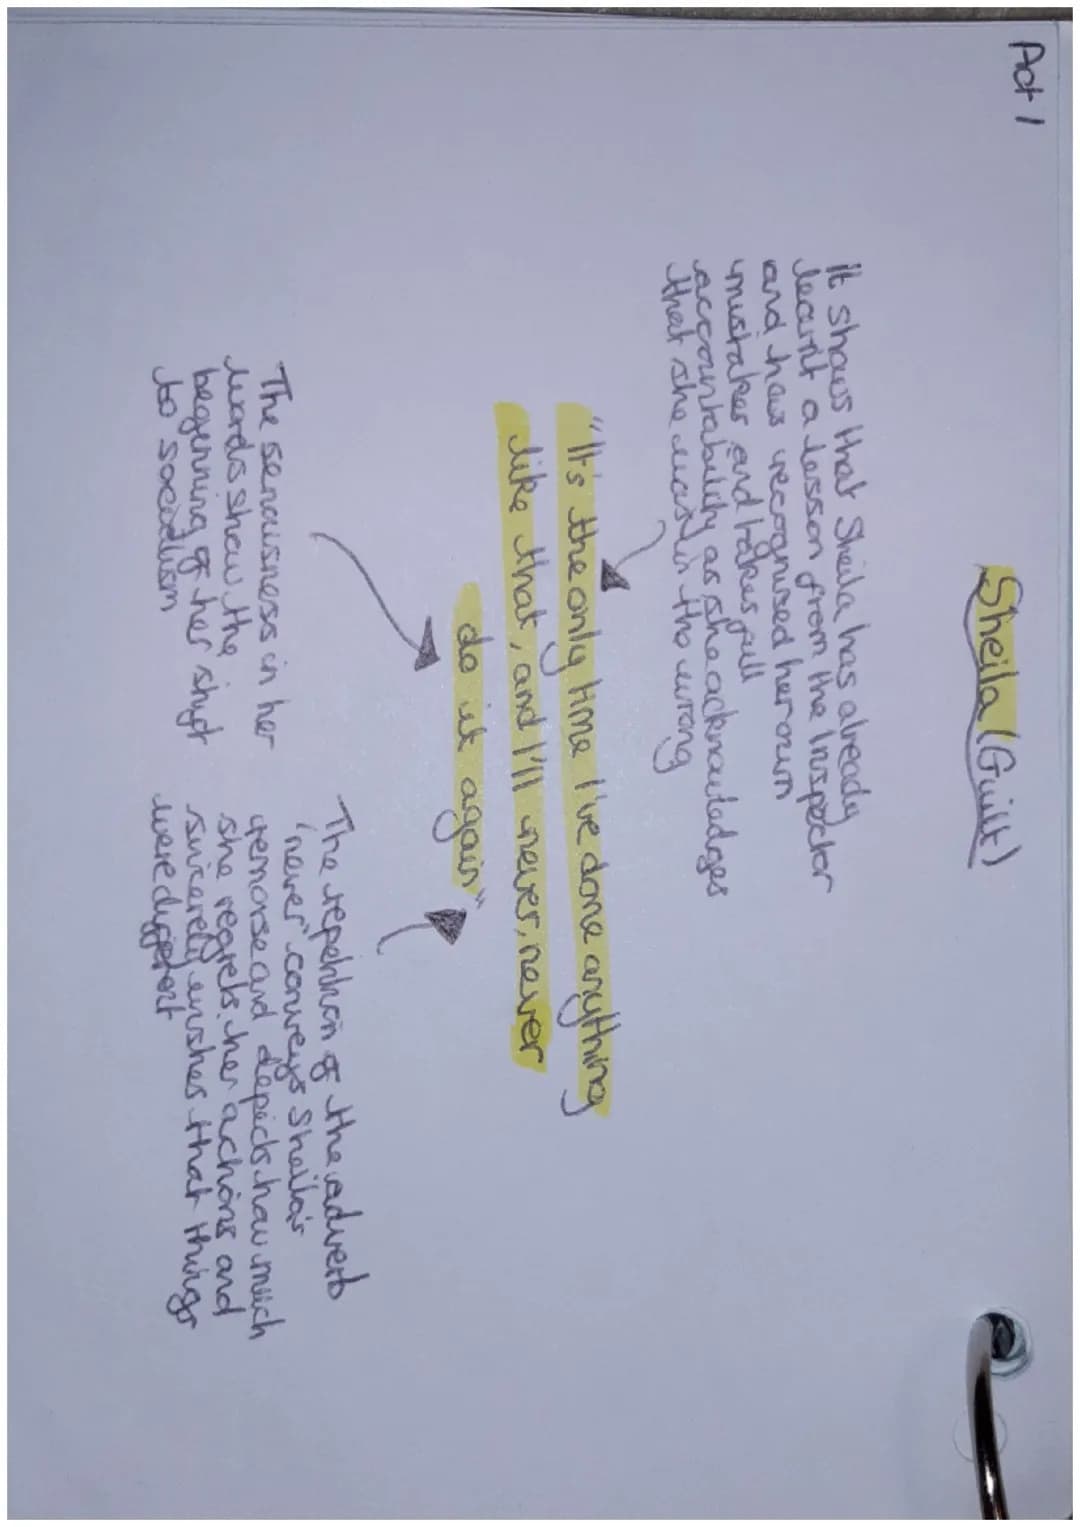 Act 1
Sheila (Guilt)
It shows that Sheila has already
learnt a lesson from the Inspector
and has recognised her own
mistakes and takes full
accountability as she acknowledges
that she was in the wrong
"It's the only time I've done anything
like that, and I'll never, never
do it again"
The seriousness in her
words show the
beginning of her shift
to socialism
The repetition of the adverb
'never" conveys Sheila's
remorse and depicts how much
she regrets her actions and
sincerely wishes that things
were different